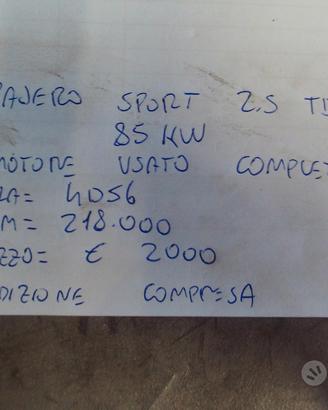 PAJERO SPORT 2.5 TD
85 KW
MOTORE USATO COMPLET
RA= 4056
M= 218.000
EZZO= € 2000
DIZIONE COMPRESA